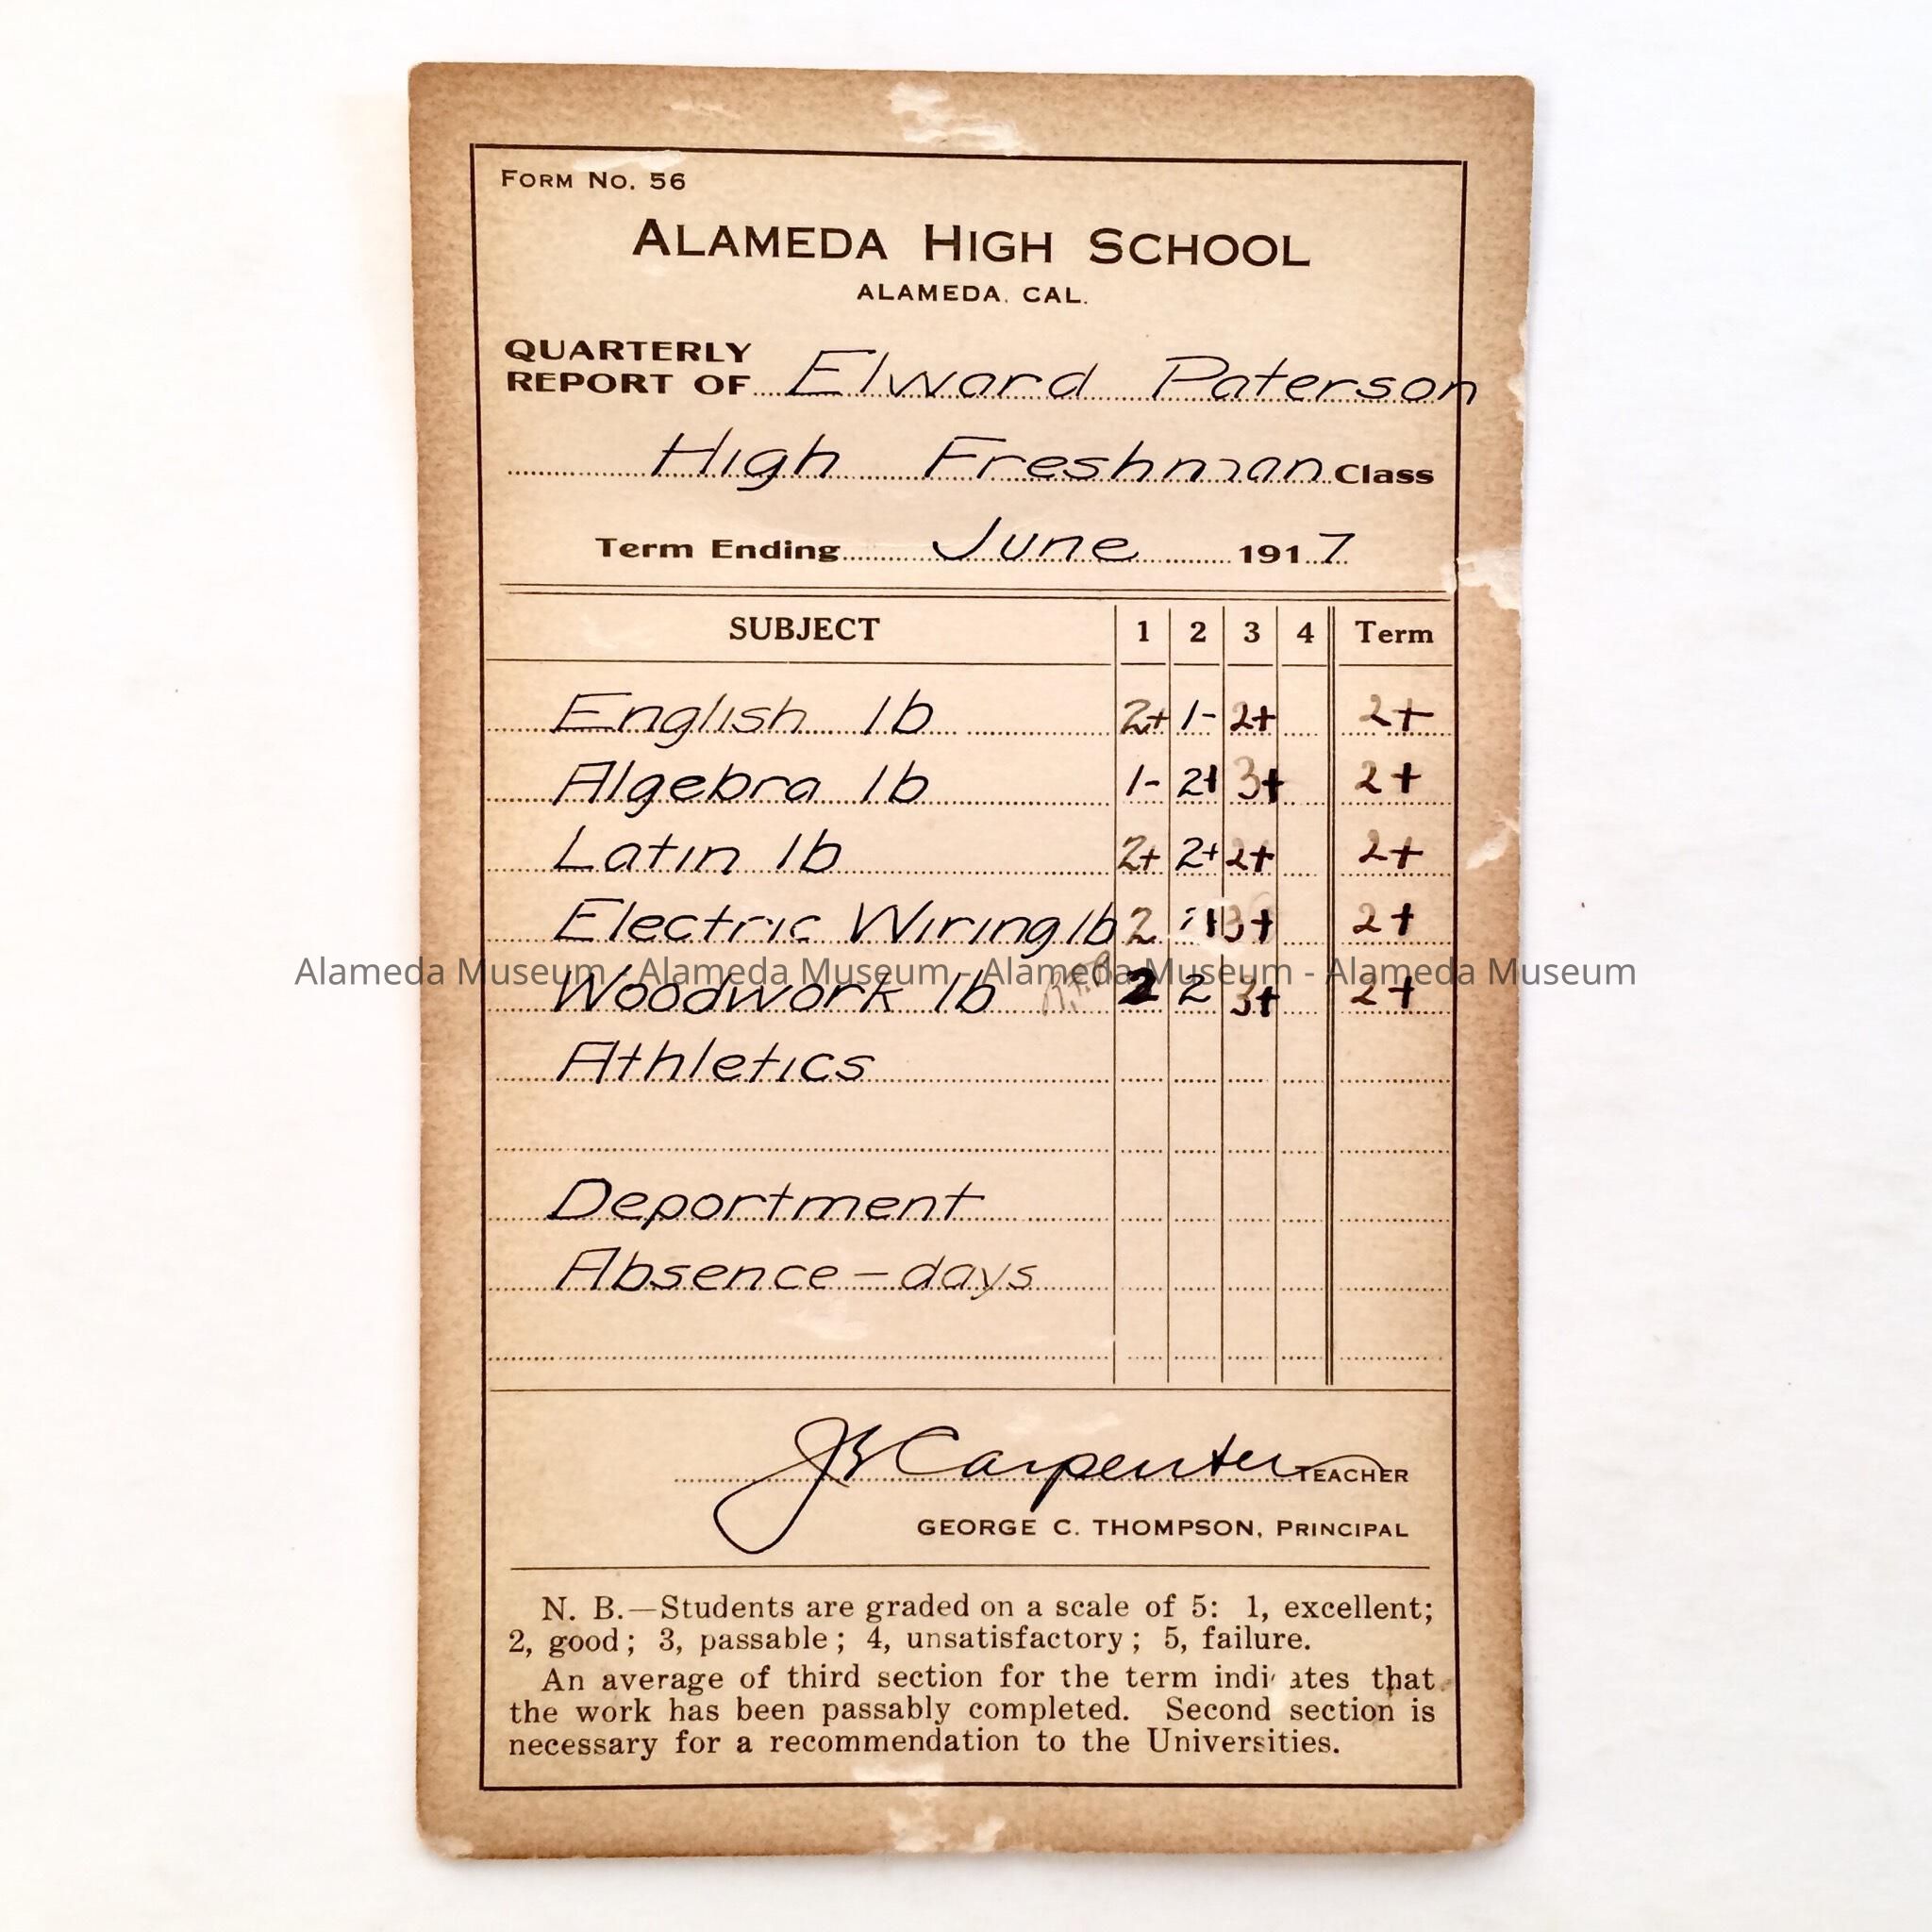 FORM NO. 56
ALAMEDA HIGH SCHOOL
ALAMEDA, CAL.
QUARTERLY
REPORT OF Elward Paterson
High Freshman Class
Term Ending June 1917
SUBJECT 1 2 3 4 Term
English 1b 2+ 1- 2+ 2+
Algebra 1b 1- 2+ 3+ 2+
Latin 1b 2+ 2+ 2+ 2+
Electric Wiring 1b 2 3+ 2+
Alameda Museum - Alameda Museum - Alameda Museum - Alameda Museum
Woodwork 1b 2 2 3+ 2+
Athletics
Deportment
Absence - days
JB Carpenter TEACHER
GEORGE C. THOMPSON, PRINCIPAL
N. B.—Students are graded on a scale of 5: 1, excellent;
2, good; 3, passable; 4, unsatisfactory; 5, failure.
An average of third section for the term indicates that
the work has been passably completed. Second section is
necessary for a recommendation to the Universities.